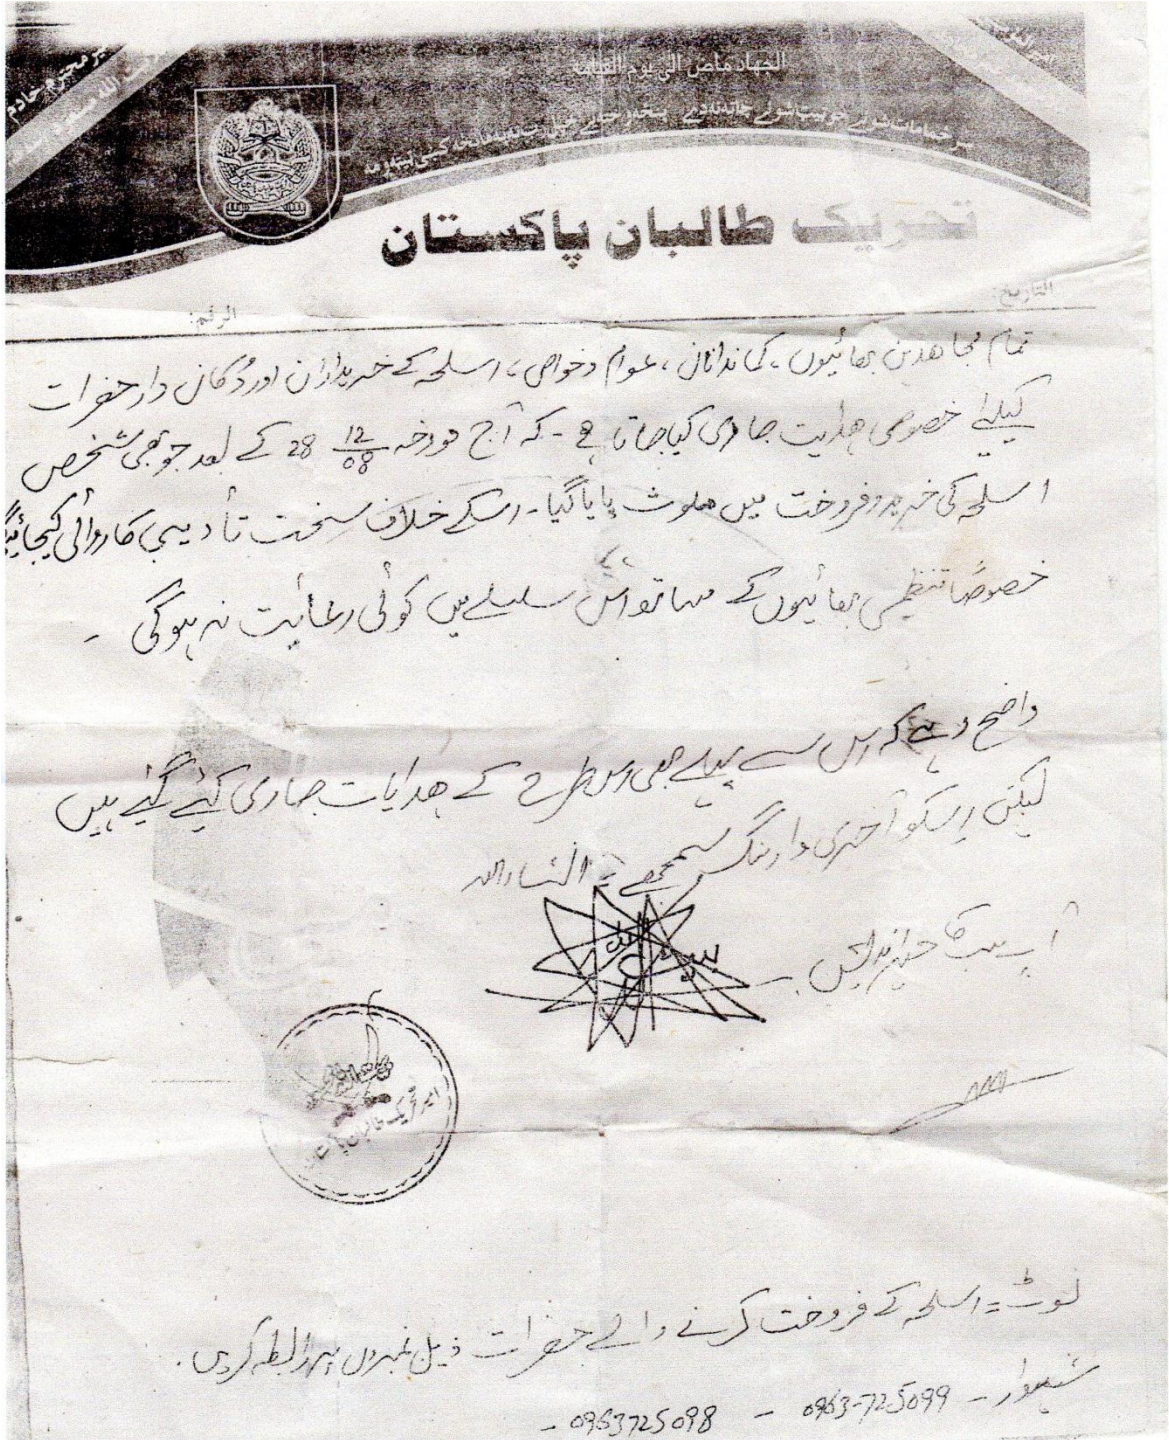 الجهاد ماض الی یوم القیامه
تحریک طالبان پاکستان
التاریخ:
الرقم:
تمام مجاھدین بھائیوں، کماندانان، عوام وخواص، اسلحہ کے خریداران اور دُکان دار حضرات
کیلئے خصوصی ھدایت جاری کیا جاتا ہے - کہ آج مورخہ 28 12/08 کے بعد جو بھی شخص
اسلحہ کی خرید و فروخت میں ملوث پایا گیا - اسکے خلاف سخت تأدیبی کاروائی کیجائیگی
خصوصًا تنظیمی بھائیوں کے ساتھ اس سلسلے میں کوئی رعائیت نہ ہوگی -
واضح رہے کہ اس سے پہلے بھی اس طرح کے ھدایات جاری کیئے گیئے ہیں
لیکن اسکو آخری وارننگ سمجھے - انشاءاللہ
آپ سب کا خیراندیش -
امیر تحریک طالبان پاکستان
نوٹ = اسلحہ کے فروخت کرنے والے حضرات ذیل نمبروں پہ رابطہ کریں.
0963-725099 - 0963725098 -